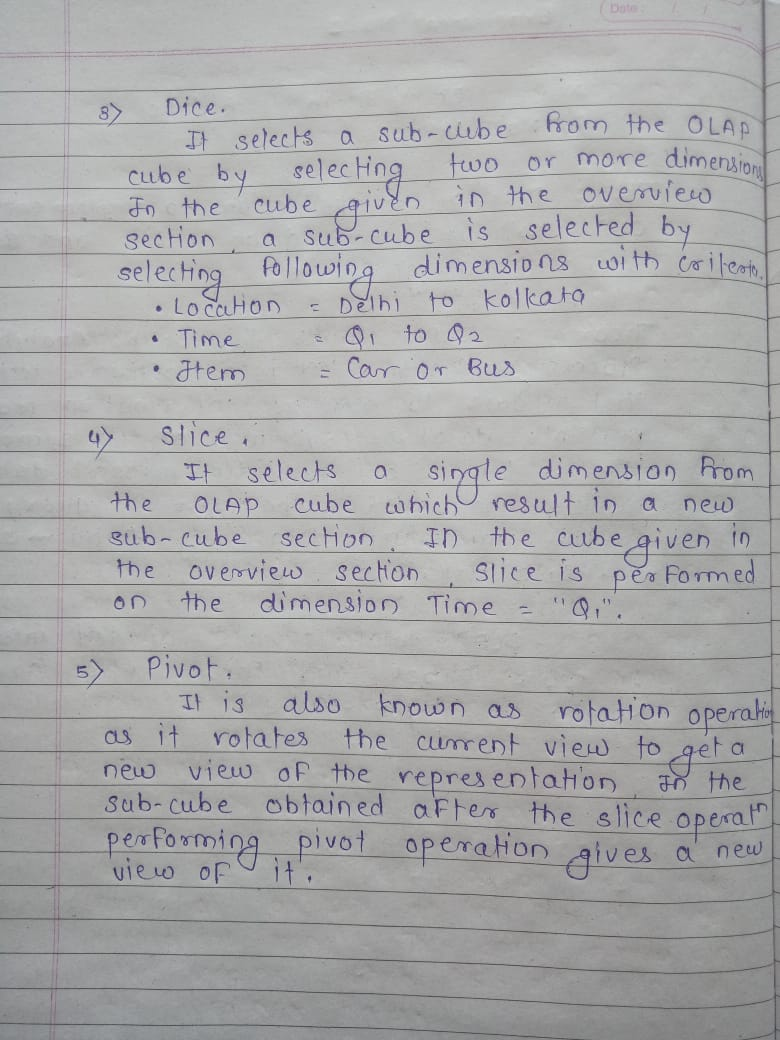 Date : / /
3) Dice.
It selects a sub-cube from the OLAP
cube by selecting two or more dimensions
In the cube given in the overview
section, a sub-cube is selected by
selecting following dimensions with criteria.
• Location = Delhi to Kolkata
• Time = Q1 to Q2
• Item = Car or Bus
4) Slice.
It selects a single dimension from
the OLAP cube which result in a new
sub-cube section. In the cube given in
the overview section, slice is performed
on the dimension Time = "Q1".
5) Pivot.
It is also known as rotation operation
as it rotates the current view to get a
new view of the representation. In the
sub-cube obtained after the slice operatn
performing pivot operation gives a new
view of it.